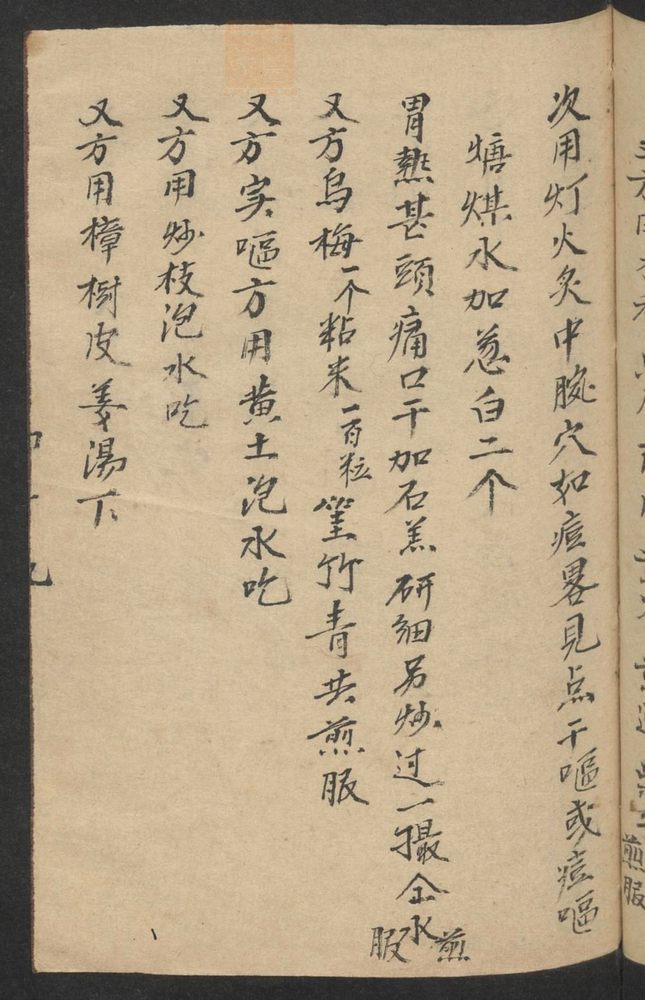 次用灯火炙中腕穴如痘畧見点干嘔或痘嘔
煻煤水加葱白二个
胃熱甚頭痛口干加石羔研細另炒过一撮仝水煎服
又方烏梅一个粘米一百粒篁竹青共煎服
又方寔嘔方用黄土泡水吃
又方用炒枝泡水吃
又方用樟樹皮姜湯下